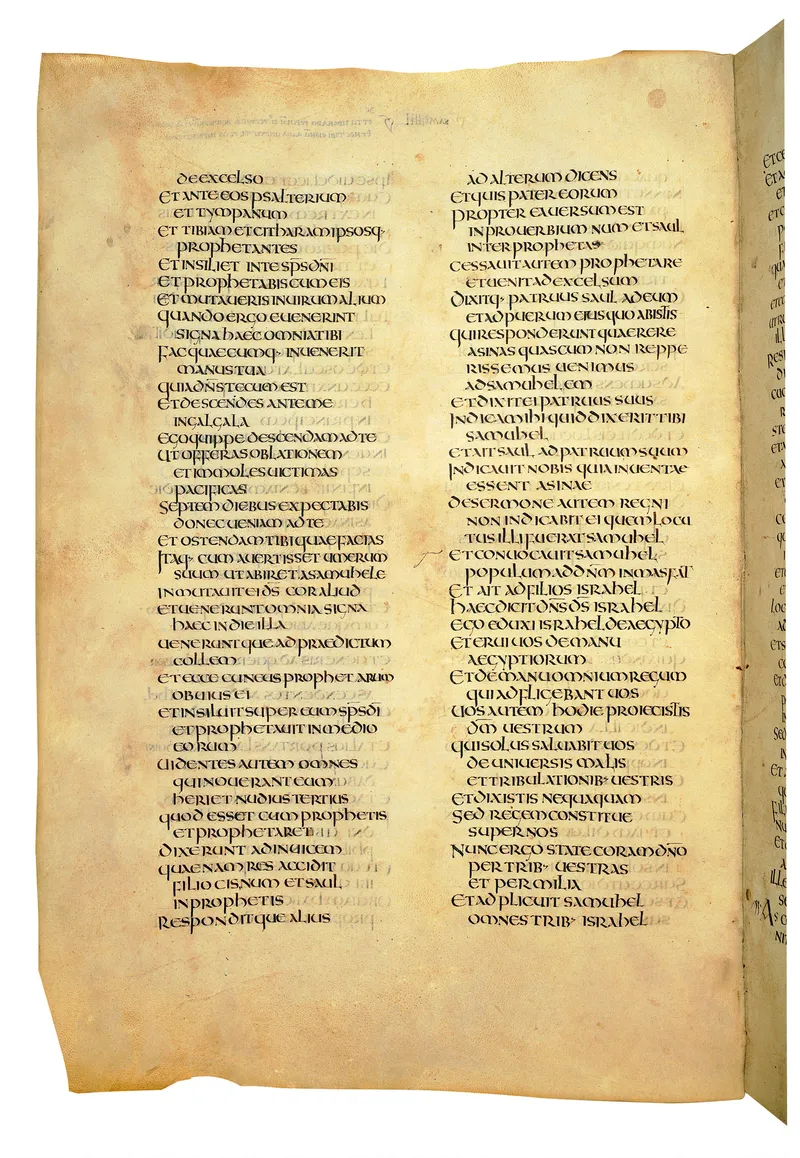 de excelso
et ante eos psalterium
et tympanum
et tibiam et citharam ipsosq·
prophetantes
et insiliet in te sp̄s dn̄i
et prophetabis cum eis
et mutaueris in uirum alium
quando ergo euenerint
signa haec omnia tibi
fac quaecumq· inuenerit
manus tua
quia dn̄s tecum est
et descendes ante me
in galgala
ego quippe descendam ad te
ut offeras oblationem
et immoles uictimas
pacificas
septem diebus expectabis
donec ueniam ad te
et ostendam tibi quae facias
itaq· cum auertisset umerum
suum ut abiret a samuhele
inmutauit ei d̄s cor aliud
et uenerunt omnia signa
haec in die illa
ueneruntque ad praedictum
collem
et ecce cuneus prophetarum
obuius ei
et insiluit super eum sp̄s dī
et prophetauit in medio
eorum
uidentes autem omnes
qui nouerant eum
heri et nudius tertius
quod esset cum prophetis
et prophetaret
dixerunt ad inuicem
quaenam res accidit
filio cis num et saul
in prophetis
responditque alius
ad alterum dicens
et quis pater eorum
propter ea uersum est
in prouerbium num et saul
inter prophetas
cessauit autem prophetare
et uenit ad excelsum
dixitq· patruus saul ad eum
et ad puerum eius quo abistis
qui responderunt quaerere
asinas quas cum non reppe
rissemus uenimus
ad samuhelem
et dixit ei patruus suus
indica mihi quid dixerit tibi
samuhel
et ait saul ad patruum suum
indicauit nobis quia inuentae
essent asinae
de sermone autem regni
non indicabit ei quem locu
tus illi fuerat samuhel
et conuocauit samuhel
populum ad dn̄m in masfat
et ait ad filios israhel
haec dicit dn̄s d̄s israhel
ego eduxi israhel de aegypto
et erui uos de manu
aegyptiorum
et de manu omnium regum
qui adfligebant uos
uos autem hodie proiecistis
dm̄ uestrum
qui solus saluabit uos
de uniuersis malis
et tribulationib· uestris
et dixistis nequaquam
sed regem constitue
super nos
nunc ergo state coram dn̄o
per trib· uestras
et per milia
et adplicuit samuhel
omnes trib· israhel